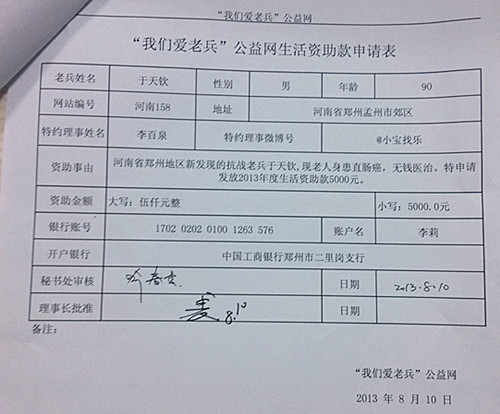 “我们爱老兵”公益网
“我们爱老兵”公益网生活资助款申请表
老兵姓名 于天钦 性别 男 年龄 90
网站编号 河南158 地址 河南省郑州孟州市郊区
特约理事姓名 李百泉 特约理事微博号 @小宝找乐
资助事由 河南省郑州地区新发现的抗战老兵于天钦,现老人身患直肠癌，无钱医治。特申请
发放2013年度生活资助款5000元。
资助金额 大写：伍仟元整 小写：5000.0元
银行账号 1702 0202 0100 1263 576 账户名 李莉
开户银行 中国工商银行郑州市二里岗支行
秘书处审核 日期 2013.8.10
理事长批准 8.10 日期
备注：
“我们爱老兵”公益网
2013 年 8 月 10 日